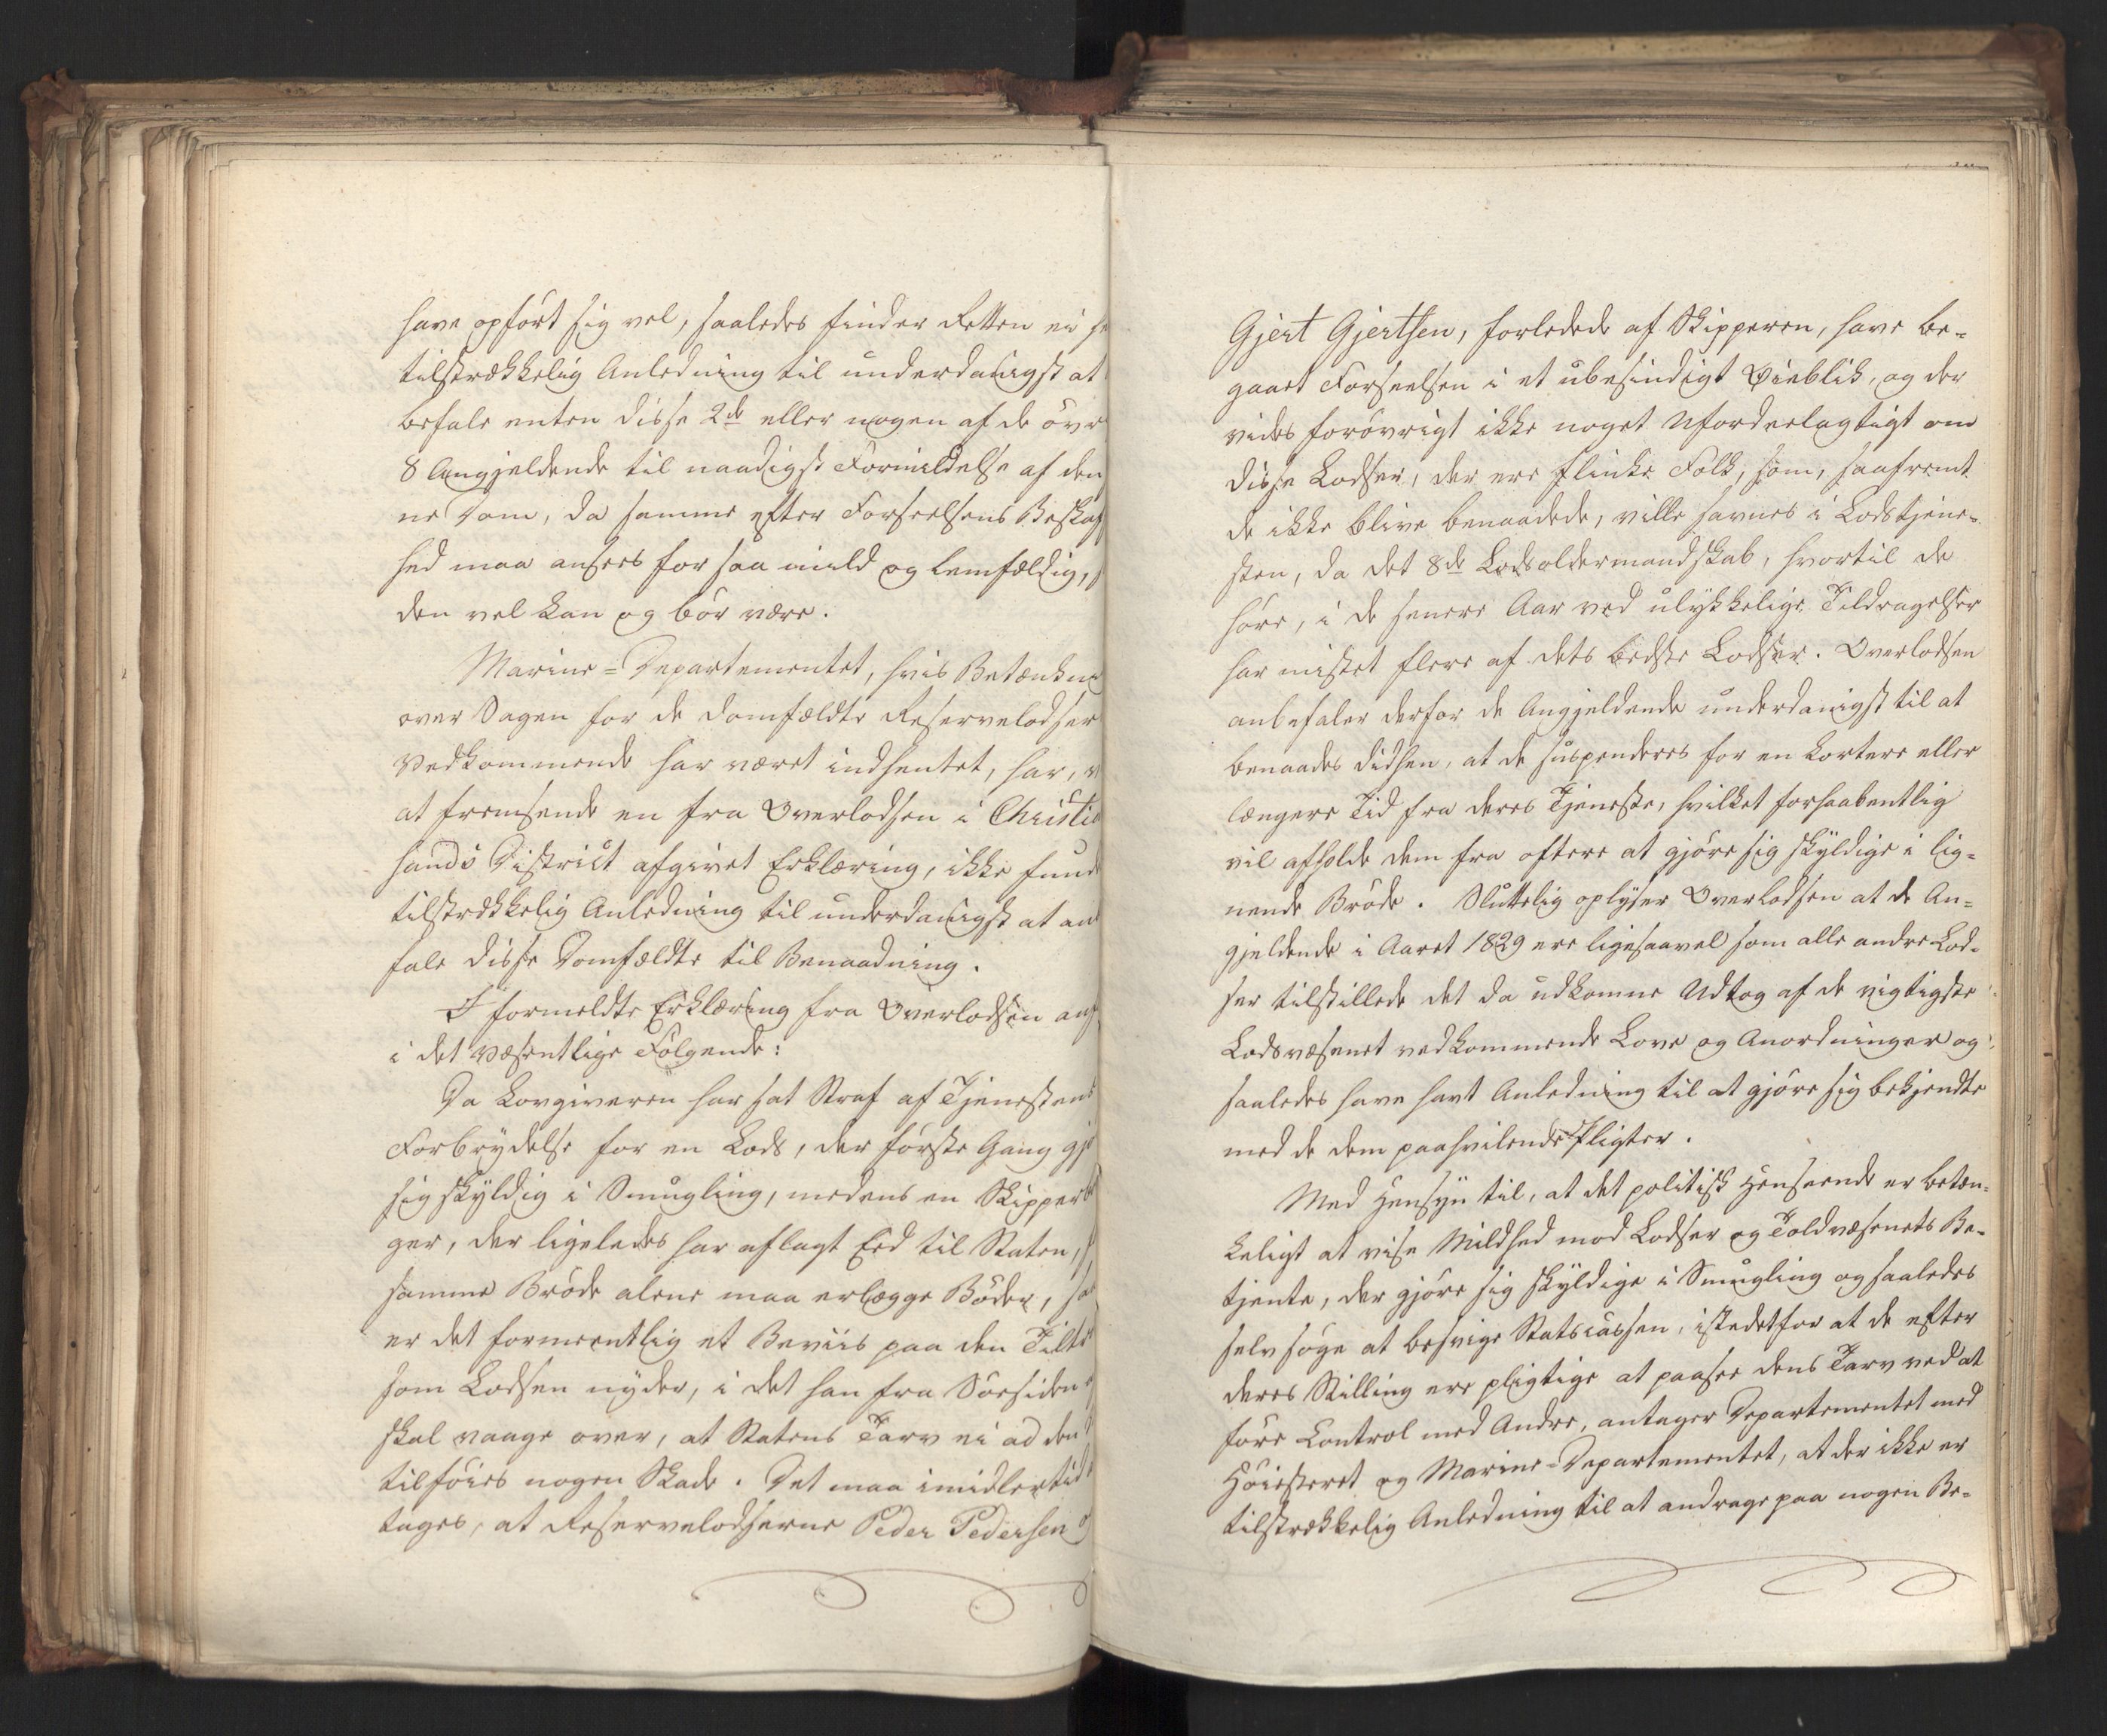 have opført sig vel, saaledes finder Retten ei
tilstrækkelig Anledning til underdanigst at
befale enten disse 2de eller nogen af de øvr
8 Angjeldende til naadigst Formildelse af den
ne Dom, da samme efter Forseelsens Beskaf
hed maa ansees for saa mild og lemfældig,
den vel kan og bør være.
Marine-Departementet, hvis Betænkni
over Sagen for de domfældte Reservelodser
Vedkommende har været indhentet, har, v
at fremsende en fra Overlodsen i Christia
sands District afgivet Erklæring, ikke fund
tilstrækkelig Anledning til underdanigst at anb
fale disse Domfældte til Benaadning.
I formeldte Erklæring fra Overlodsen anf
i det væsentlige Følgende:
Da Lovgiveren har sat Straf af Tjenestens
Forbrydelse for en Lods, der første Gang gjø
sig skyldig i Smugling, medens en Skipperbor
ger, der ligeledes har aflagt Eed til Staten,
samme Brøde alene maa erlægge Bøder, saa
er det formeentlig et Beviis paa den Tiltro
som Lodsen nyder, i det han fra Søesiden
skal vaage over, at Statens Tarv ei ad den
tilføies nogen Skade. Det maa imidlertid
tages, at Reservelodserne Peder Pedersen o
Gjert Gjertsen, forledede af Skipperen, have be-
gaaet Forseelsen i et ubesindigt Øieblik, og der
vides forøvrigt ikke noget Ufordeelagtigt om
disse Lodser, der ere flinke Folk, som, saafremt
de ikke blive benaadede, ville savnes i Lodstjene-
sten, da det 8de Lodsoldermandskab, hvortil de
høre, i de senere Aar ved ulykkelige Tildragelser
har mistet flere af dets bedste Lodser. Overlodsen
anbefaler derfor de Angjeldende underdanigst til at
benaades didhen, at de suspenderes for en kortere eller
længere Tid fra deres Tjeneste, hvilket forhaabentlig
vil afholde dem fra oftere at gjøre sig skyldige i lig-
nende Brøde. Sluttelig oplyser Overlodsen at de An-
gjeldende i Aaret 1829 ere ligesaavel som alle andre Lod-
ser tilstillede det da udkomne Udtog af de vigtigste
Lodsvæsenet vedkommende Love og Anordninger og
saaledes have havt Anledning til at gjøre sig bekjendte
med de dem paahvilende Pligter.
Med Hensyn til, at det politisk Henseende er betæn-
keligt at vise Mildhed mod Lodser og Toldvæsenets Be-
tjente, der gjøre sig skyldige i Smugling og saaledes
selv søge at besvige Statscassen, istedetfor at de efter
deres Stilling ere pligtige at paasee dens Tarv ved at
føre Control med Andre, antager Departementet med
Høiesteret og Marine-Departementet, at der ikke er
tilstrækkelig Anledning til at andrage paa nogen Be-